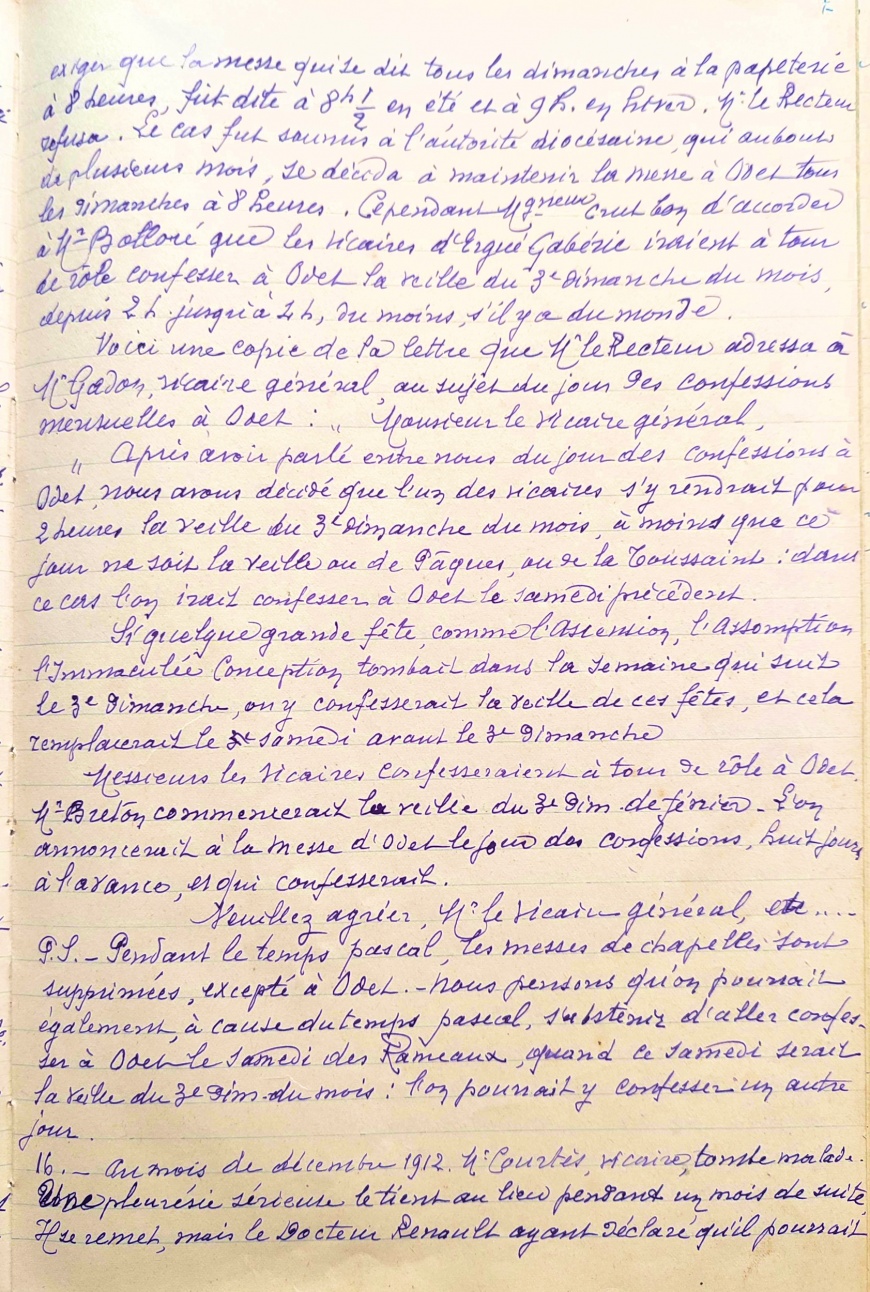 exiger que la messe qui se dit tous les dimanches à la papeterie
à 8 heures, fut dite à 8h 1/2 en été et à 9h. en hiver. Mr le Recteur
refusa. Le cas fut soumis à l'autorité diocésaine, qui au bout
de plusieurs mois, se décida à maintenir la messe à Odet tous
les dimanches à 8 heures. Cependant Mgneur crut bon d'accorder
à Mr Bolloré que les vicaires d'Ergué Gabéric iraient à tour
de rôle confesser à Odet la veille du 3e dimanche du mois,
depuis 2h jusqu'à 4h, du moins, s'il y a du monde.
Voici une copie de la lettre que Mr le Recteur adressa à
Mr Gadon, vicaire général, au sujet du jour des confessions
mensuelles à Odet : " Monsieur le vicaire général,
" Après avoir parlé entre nous du jour des confessions à
Odet, nous avons décidé que l'un des vicaires s'y rendrait pour
2 heures la veille du 3e dimanche du mois, à moins que ce
jour ne soit la veille ou de Pâques, ou de la Toussaint : dans
ce cas l'on irait confesser à Odet le samedi précédent.
Si quelque grande fête, comme l'Ascension, l'Assomption
l'Immaculée Conception tombait dans la semaine qui suit
le 3e dimanche, on y confesserait la veille de ces fêtes, et cela
remplacerait le samedi avant le 3e dimanche
Messieurs les vicaires confesseraient à tour de rôle à Odet.
Mr Breton commencerait la veille du 3e dim. de février - L'on
annoncerait à la messe d'Odet le jour des confessions, huit jours
à l'avance, et qui confesserait.
Veuillez agréer, Mr le vicaire général, etc....
P.S. - Pendant le temps pascal, les messes de chapelles sont
supprimées, excepté à Odet. - Nous pensons qu'on pourrait
également, à cause du temps pascal, s'abstenir d'aller confes-
ser à Odet le samedi des Rameaux, quand ce samedi serait
la veille du 3e dim. du mois : l'on pourrait y confesser un autre
jour.
16. - Au mois de décembre 1912. Mr Courtès, vicaire, tombe malade.
Une pleurésie sérieuse le tient au lieu pendant un mois de suite
Il se remet, mais le Docteur Renault ayant déclaré qu'il pourrait